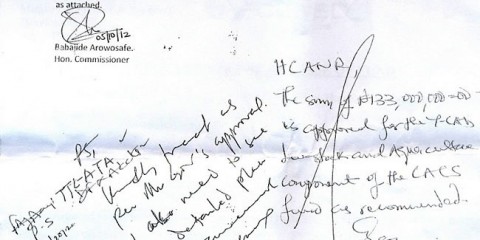 as attached.
05/10/12
Babajide Arowosafe.
Hon. Commissioner
HCANR,
The sum of ₦133,000,000=00
is approved for the
Livestock and Aquaculture
component of the CACS
fund as recommended.
PS,
Kindly treat as
per Mr Gov's approval.
I also need to see
detailed plan